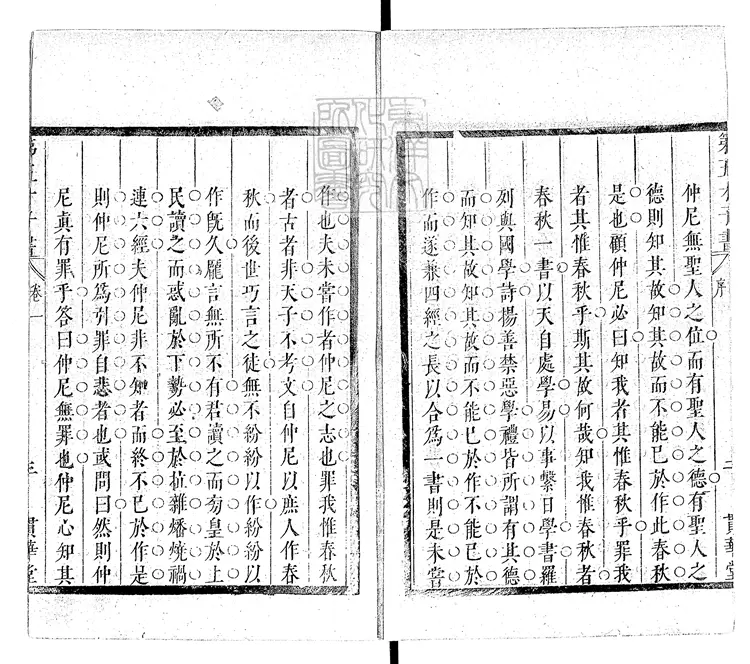 第五才子書
序
二
貫華堂
仲尼無聖人之位而有聖人之德有聖人之
德則知其故知其故而不能已於作此春秋
是也顧仲尼必曰知我者其惟春秋乎罪我
者其惟春秋乎斯其故何哉知我惟春秋者
春秋一書以天自處學易以事繫日學書羅
列與國學詩揚善禁惡學禮皆所謂有其德
而知其故知其故而不能已於作不能已於
作而遂兼四經之長以合為一書則是未嘗
作也夫未嘗作者仲尼之志也罪我惟春秋
者古者非天子不考文自仲尼以庶人作春
秋而後世巧言之徒無不紛紛以作紛紛以
作既久龐言無所不有君讀之而旁皇於上
民讀之而惑亂於下勢必至於拉雜燔燒禍
連六經夫仲尼非不知者而終不已於作是
則仲尼所為引罪自悲者也或問曰然則仲
尼真有罪乎答曰仲尼無罪也仲尼心知其
第五才子書
卷一
三
貫華堂